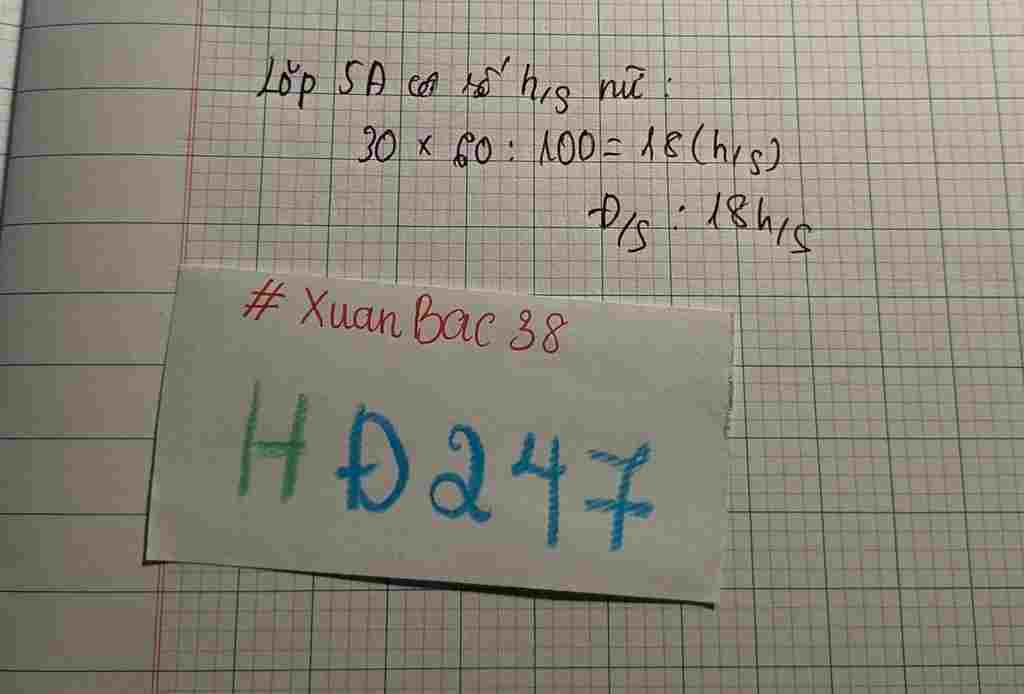 Lớp 5A có số h/s nữ :
30 × 60 : 100 = 18 (h/s)
Đ/s : 18 h/s
# Xuan Bac 38
HĐ247